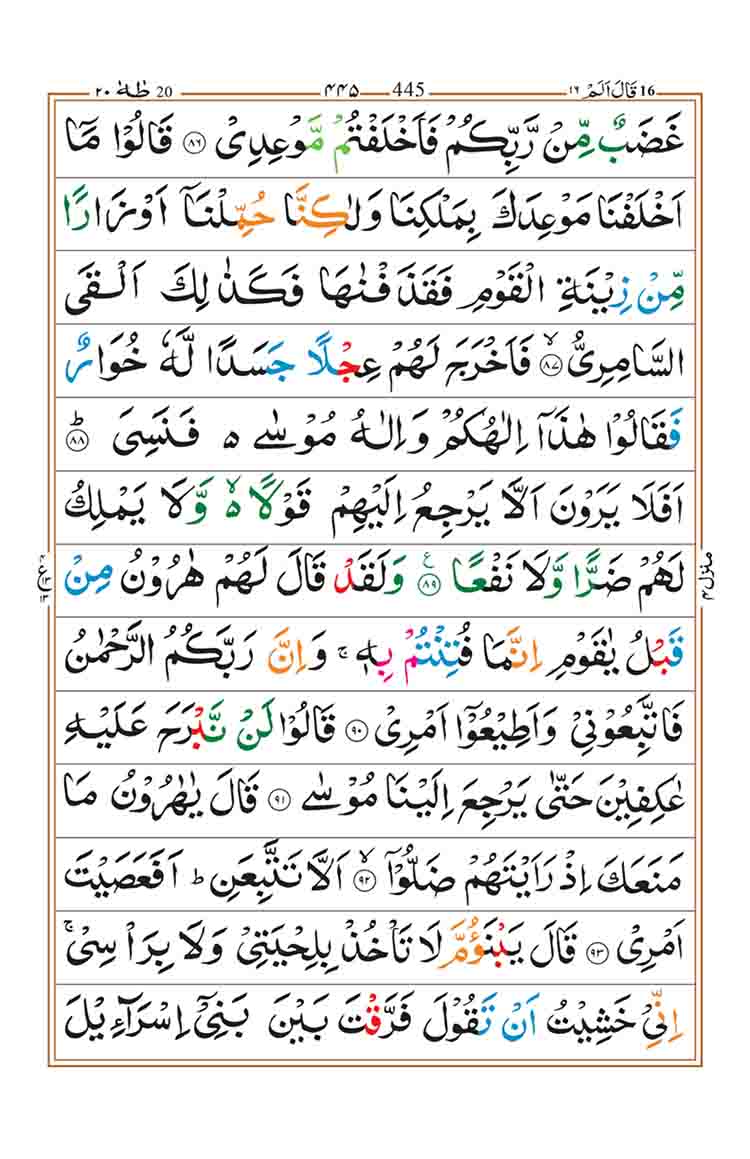 20 طٰهٰ ٢٠ 445 ۴۴۵ 16 قَالَ اَلَمْ ١٦
غَضَبٌ مِّنْ رَّبِّكُمْ فَاَخْلَفْتُمْ مَّوْعِدِیْ ﴿۸۶﴾ قَالُوْا مَاۤ
اَخْلَفْنَا مَوْعِدَكَ بِمَلْكِنَا وَلٰكِنَّا حُمِّلْنَاۤ اَوْزَارًا
مِّنْ زِیْنَةِ الْقَوْمِ فَقَذَفْنٰهَا فَكَذٰلِكَ اَلْقَی
السَّامِرِیُّ ﴿۸۷﴾ۙ فَاَخْرَجَ لَهُمْ عِجْلًا جَسَدًا لَّهٗ خُوَارٌ
فَقَالُوْا هٰذَاۤ اِلٰهُكُمْ وَاِلٰهُ مُوْسٰی ۵ فَنَسِیَ ﴿۸۸﴾ؕ
اَفَلَا یَرَوْنَ اَلَّا یَرْجِعُ اِلَیْهِمْ قَوْلًا ۵ۙ وَّلَا یَمْلِكُ
لَهُمْ ضَرًّا وَّلَا نَفْعًا ﴿۸۹﴾ع وَلَقَدْ قَالَ لَهُمْ هٰرُوْنُ مِنْ
قَبْلُ یٰقَوْمِ اِنَّمَا فُتِنْتُمْ بِهٖ ۚ وَاِنَّ رَبَّكُمُ الرَّحْمٰنُ
فَاتَّبِعُوْنِیْ وَاَطِیْعُوْۤا اَمْرِیْ ﴿۹۰﴾ قَالُوْا لَنْ نَّبْرَحَ عَلَیْهِ
عٰكِفِیْنَ حَتّٰی یَرْجِعَ اِلَیْنَا مُوْسٰی ﴿۹۱﴾ قَالَ یٰهٰرُوْنُ مَا
مَنَعَكَ اِذْ رَاَیْتَهُمْ ضَلُّوْۤا ﴿۹۲﴾ۙ اَلَّا تَتَّبِعَنِ ؕ اَفَعَصَیْتَ
اَمْرِیْ ﴿۹۳﴾ قَالَ یَبْنَؤُمَّ لَا تَاْخُذْ بِلِحْیَتِیْ وَلَا بِرَاْسِیْ ۚ
اِنِّیْ خَشِیْتُ اَنْ تَقُوْلَ فَرَّقْتَ بَیْنَ بَنِیْۤ اِسْرَآءِیْلَ
منزل ۴